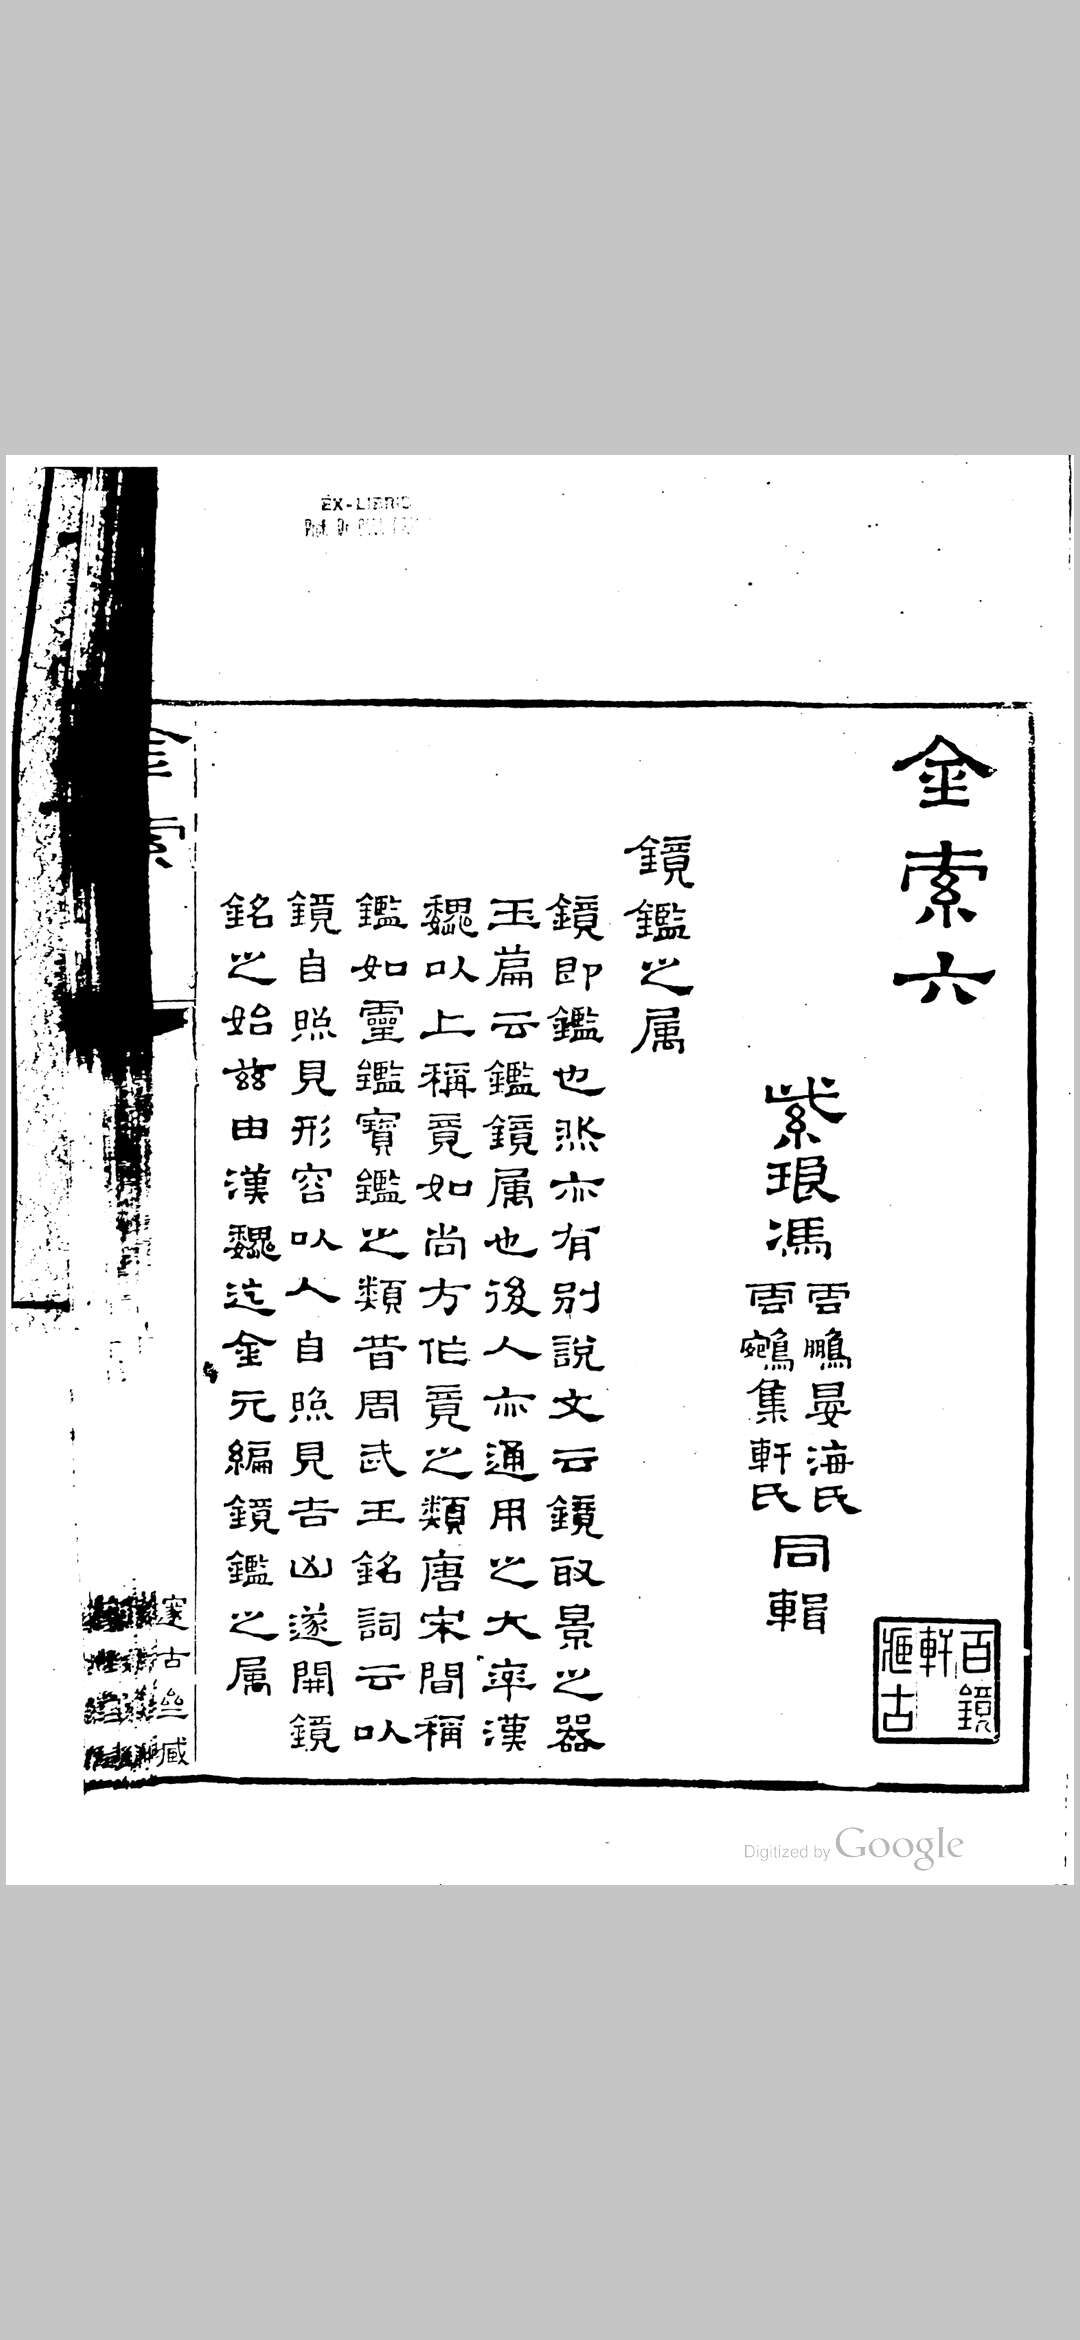 EX-LIBRIS
金索六
紫琅馮
雲鵬晏海氏
雲鵷集軒氏
同輯
百鏡
軒
古
鏡鑑之属
鏡即鑑也然亦有别說文云鏡取景之器
玉篇云鑑鏡属也後人亦通用之大率漢
魏以上稱竟如尚方作竟之類唐宋間稱
鑑如靈鑑寶鑑之類昔周武王銘詞云以
鏡自照見形容以人自照見吉凶遂開鏡
銘之始茲由漢魏迄金元編鏡鑑之属
金索
邃古齋藏
Digitized by Google